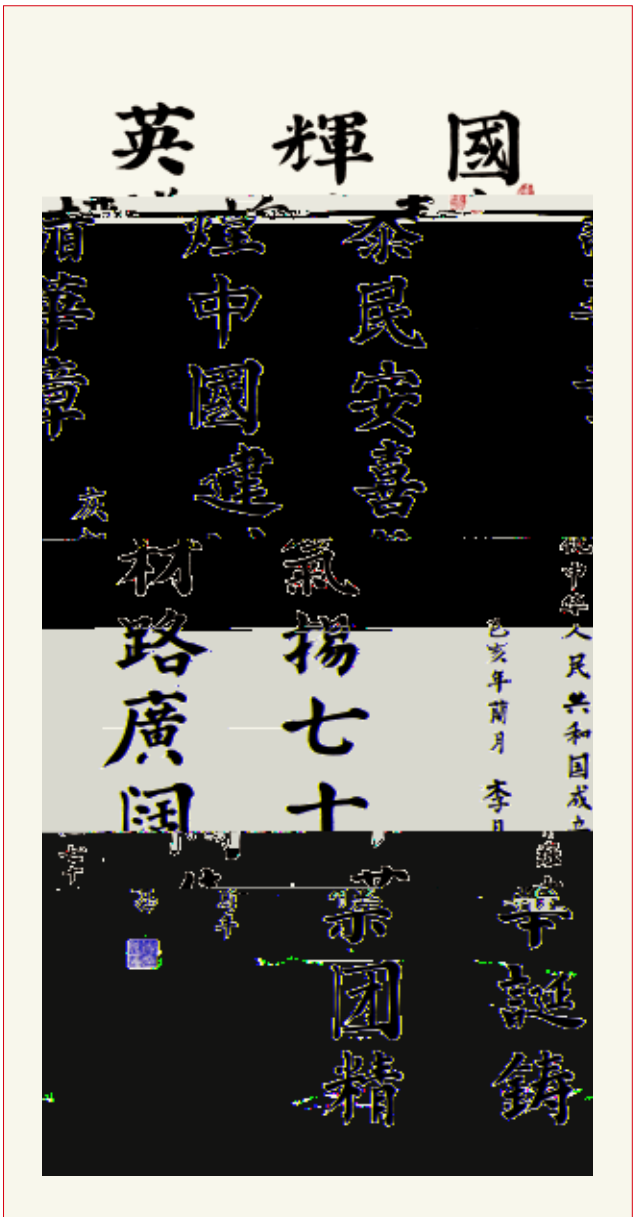 國
輝
英
泰民安喜
煌中國建
華章
亥
中华人民共和国成立
己亥年蘭月 李
氣揚七十
材路廣阔
華誕鑄
業团精
七十